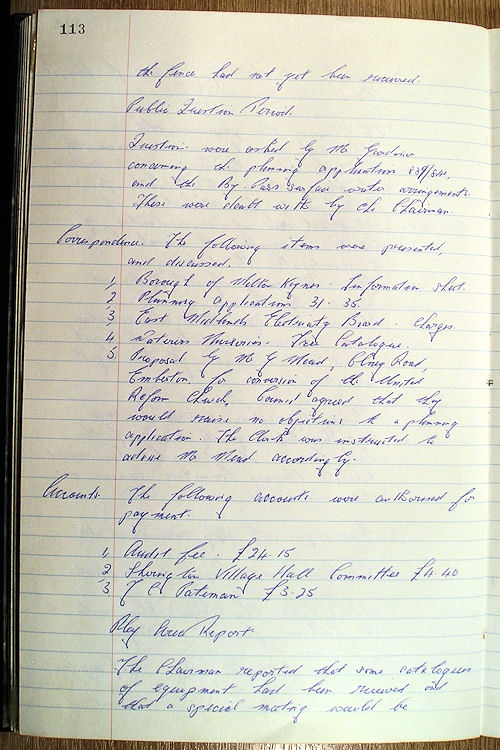 113
the fence had not yet been received.
Public Question Period.
Question were asked by Mr Goodwin
concerning the planning application 839/84,
and the By Pass surface water arrangements.
These were dealt with by the Chairman.
Correspondence. The following items were presented,
and discussed.
1, Borough of Milton Keynes. Information sheet.
2, Planning applications 31. 35.
3, East Midlands Electricity Board. Charges.
4 Nurseries. Tree Catalogue.
5. Proposal by Mr G Mead, Olney Road,
Emberton, for conversion of the United
Reform Church, Council agreed that they
would raise no objections to a planning
application. The Clerk was instructed to
advise Mr Mead accordingly.
Accounts. The following accounts were authorised for
payment.
1, Audit fee. £24.15
2, Sherington Village Hall Committee £4.40
3, J C Pateman £3.25
Play Area Report.
The Chairman reported that some catalogues
of equipment had been received and
that a special meeting would be